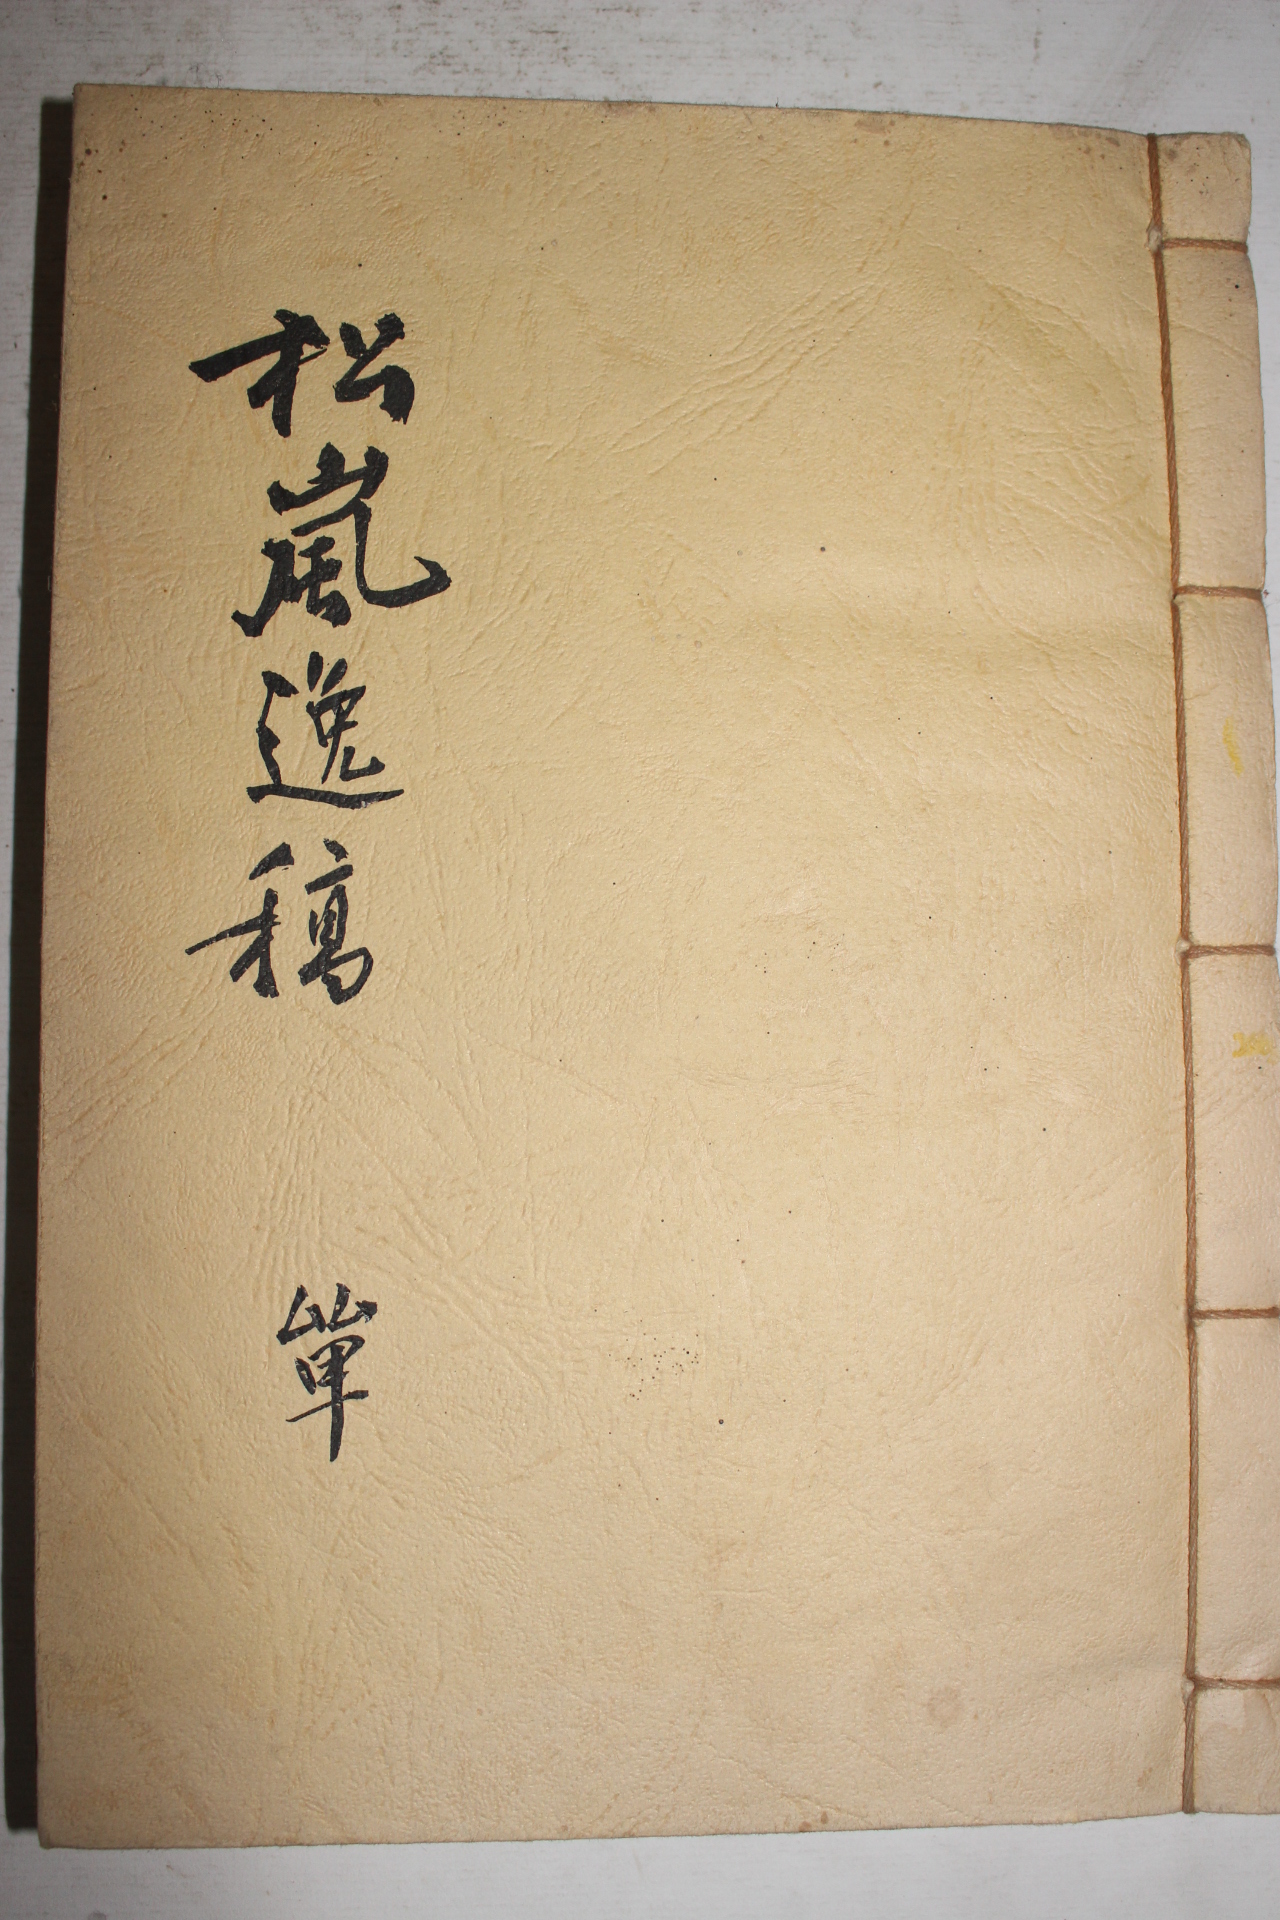 松嵐逸稿 單